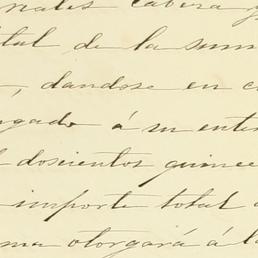 reales cabera y
total de la suma
, dandose en c
gado á su enter
l doscientos quince
importe total
ma otorgará á la